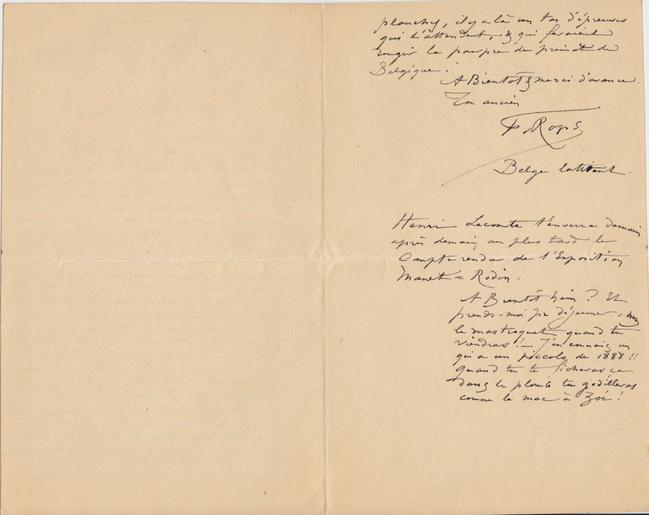 planches, il y a là un tas d'épreuves
qui t'attendent, & qui feraient
rougir la pourpre de
Belgique!
A Bientôt & merci d'avance
Ton ancien
F. Rops
Belge latitant.
Henri Lecomte t'enverra demain
après demain au plus tard le
Compte rendu de l'Exposition
Manet = Rodin.
A Bientôt hein? Et
prends-moi pr déjeuner chez
le mastroquet quand tu
viendras! – J'en connais un
qui a un piccolo de 1888!!
quand tu te ficheras ça
dans le plomb tu godilleras
comme le mac à Zoé!